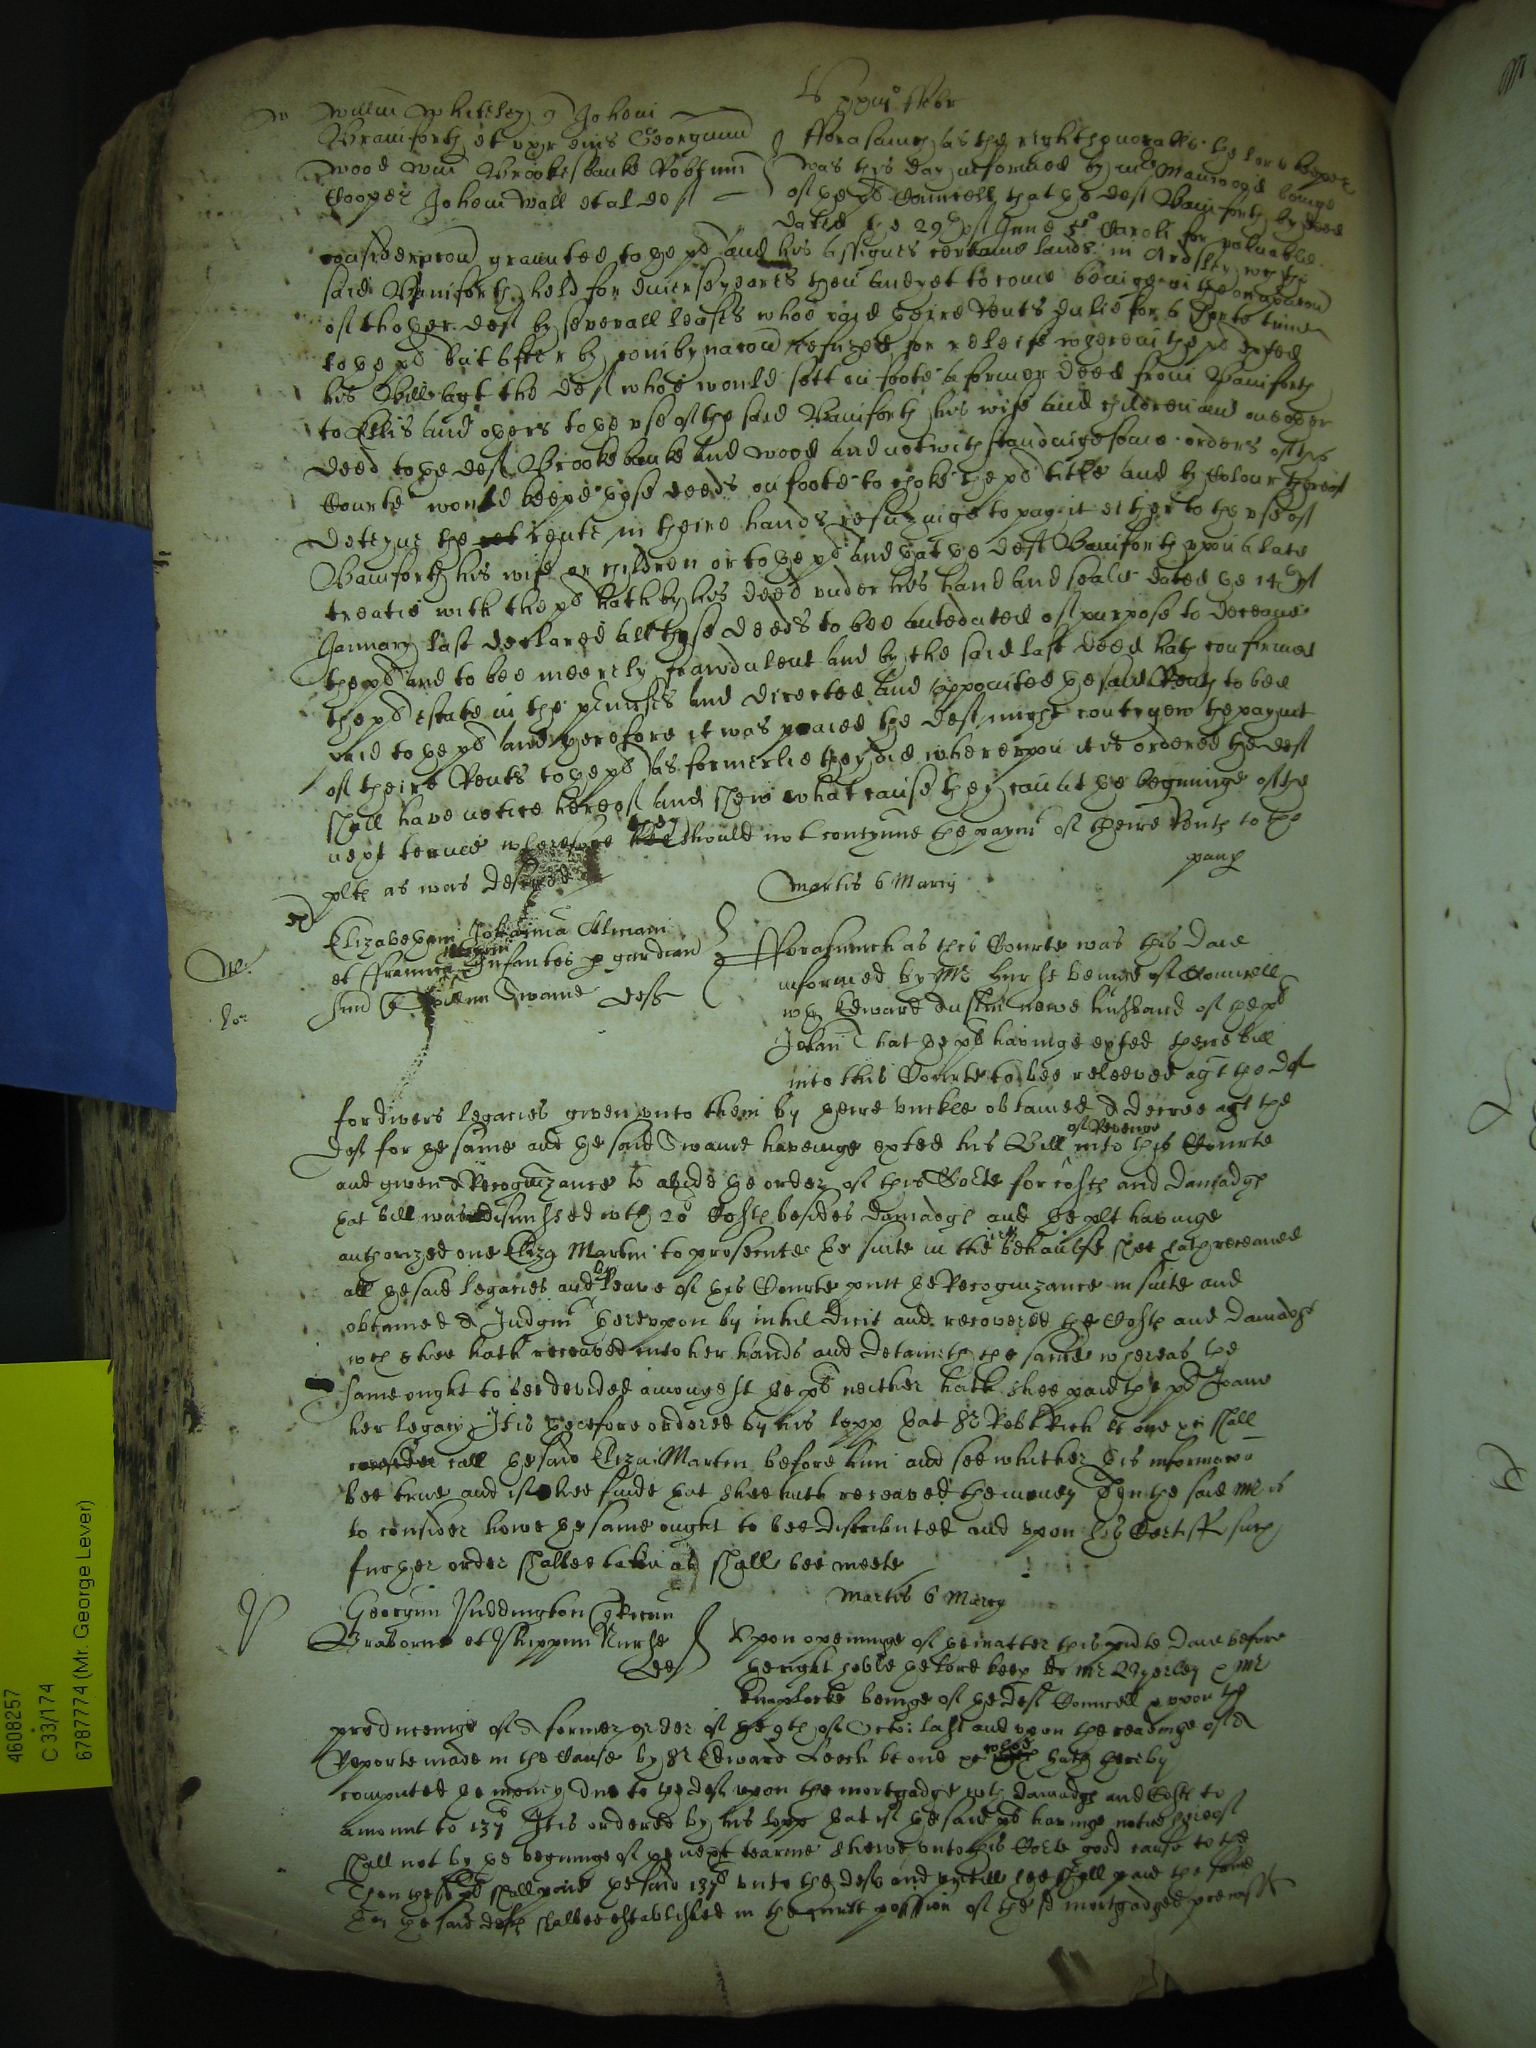 Willm Whitley q Johem
Bramforth et uxor eius Georgium
Wood Wm Brookesbanke Robtum
Cooper Johem Wall et al def
fforasmuch as the right honorable the lord keeper
was this day informed by Mr Manwood beinge
of the plts Councell that the deft Bamforth by deed
dated the 29th of June 5o Caroli for valuable
consideracon graunted to the plt and his assignes certaine lands in Ardsley wch the
said Bamforth held for diverse yeares then and yet to come beinge in the occupacon
of thother deft by severall leases whoe paid theire Rents dulie for a certe time
to the plt but after by combynacon refused for releife wherein the plt exhted
his Bill agt the deft whoe would sett on foote a former deed from Bamforth
to Ellis and others to the use of the said Bamforth his wife and children and one other
deed to the deft Brookebanke and Wood and notwithstandinge some orders of this
Courte would keepe those deeds on foote to choke the plts title and by Colour thereof
deteyne the rents in theire hands refusinge to pay it either to the use of
Bamforth his wife or children or to the plt and that the deft Bamforth upon a late
treatie with the plt hath by his deed under his hand and seale dated the 14th of
January last declared all these deeds to bee antedated of purpose to deceave
the plt and to bee meerely fraudulent and by the said last deed hath confirmed
the plts estate in the prmisses and directed and appointed the said Rents to bee
paid to the plt and therefore it was praied the deft might contynew the paymt
of theire Rents to the plt as formerlie they did whereupon it is ordered the deft
shall have notice hereof and shew what cause they can at the beginninge of the
next terme wherefore they should not contynue the paymt of theire rents to the
plte as was desired
Martis 6 Marcij
Elizabetham Johanna Almain
et ffrancis Infantes p gardian
Swaine deft
fforasmuch as this Courte was this daie
informed by Mr Hurst beinge of Councell
wth Edward Austin nowe husband of the plt
Johan that the plts havinge exhted theire bill
into this Courte to bee releeved agt the deft
for divers legacies given unto them by theire unckle obtained a decree agt the
deft for the same and the said Swaine haveinge exhted his Bill of Reveiw into this Courte
and given a Recognizance to abide the order of this Corte for costs and damadges
that bill was dismissed wth 20s Costs besides damadges and the plts havinge
authorized one Eliza Martin to prosecute the suite in their behaulfe shee hath receaved
all the said legacies and by leave of this Courte putt the Recognizance in suite and
obtained a Judgmt thereupon by nihil dicit and recovered the Costs and damadges
wch shee hath receaved into her hands and detaineth the same whereas the
same ought to bee devided amongest the plts neither hath shee paid the plt Joane
her legacy It is therefore ordered by his lopp that Sr Robt Rich kt one &c shall
call the said Eliza Martin before him and see whether this informacon
bee true and if hee finde that shee hath receaved the money then the said Mr is
to consider howe the same ought to bee distributed and upon his Certiff such
further order shalbee taken as shall bee meete
Martis 6 Marcij
Georgium Puddington
et Skippim Nurse
def
Upon openinge of the matter this pnte daie before
the right hoble the lord keep by Mr Mr
beinge of the defts Councell &c upon the
producinge of a former order of the 9th of Octo: last and upon the readinge of a
Reporte made in the Cause by Sr Edward Leech kt one &c whoe hath thereby
computed the money due to the deft upon the mortgadge wth damadges and Costs to
amount to 137l It is ordered by his lopp that if the said plts havinge notice hereof
shall not by the beginninge of the next tearme shewe unto this Corte good cause to the
Then the plt shall paie the said 137l unto the deft and untill hee shall paie the same
the said deft shalbee established in the possion of the sd mortgadged premisses
4608257
C 33/174
6787774 (Mr. George Lever)